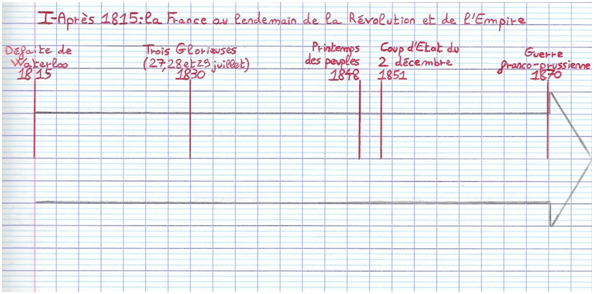 I-Après 1815: la France au lendemain de la Révolution et de l'Empire
Défaite de
Waterloo
1815
Trois Glorieuses
(27,28 et 29 juillet)
1830
Printemps
des peuples
1848
Coup d'Etat du
2 décembre
1851
Guerre
franco-prussienne
1870